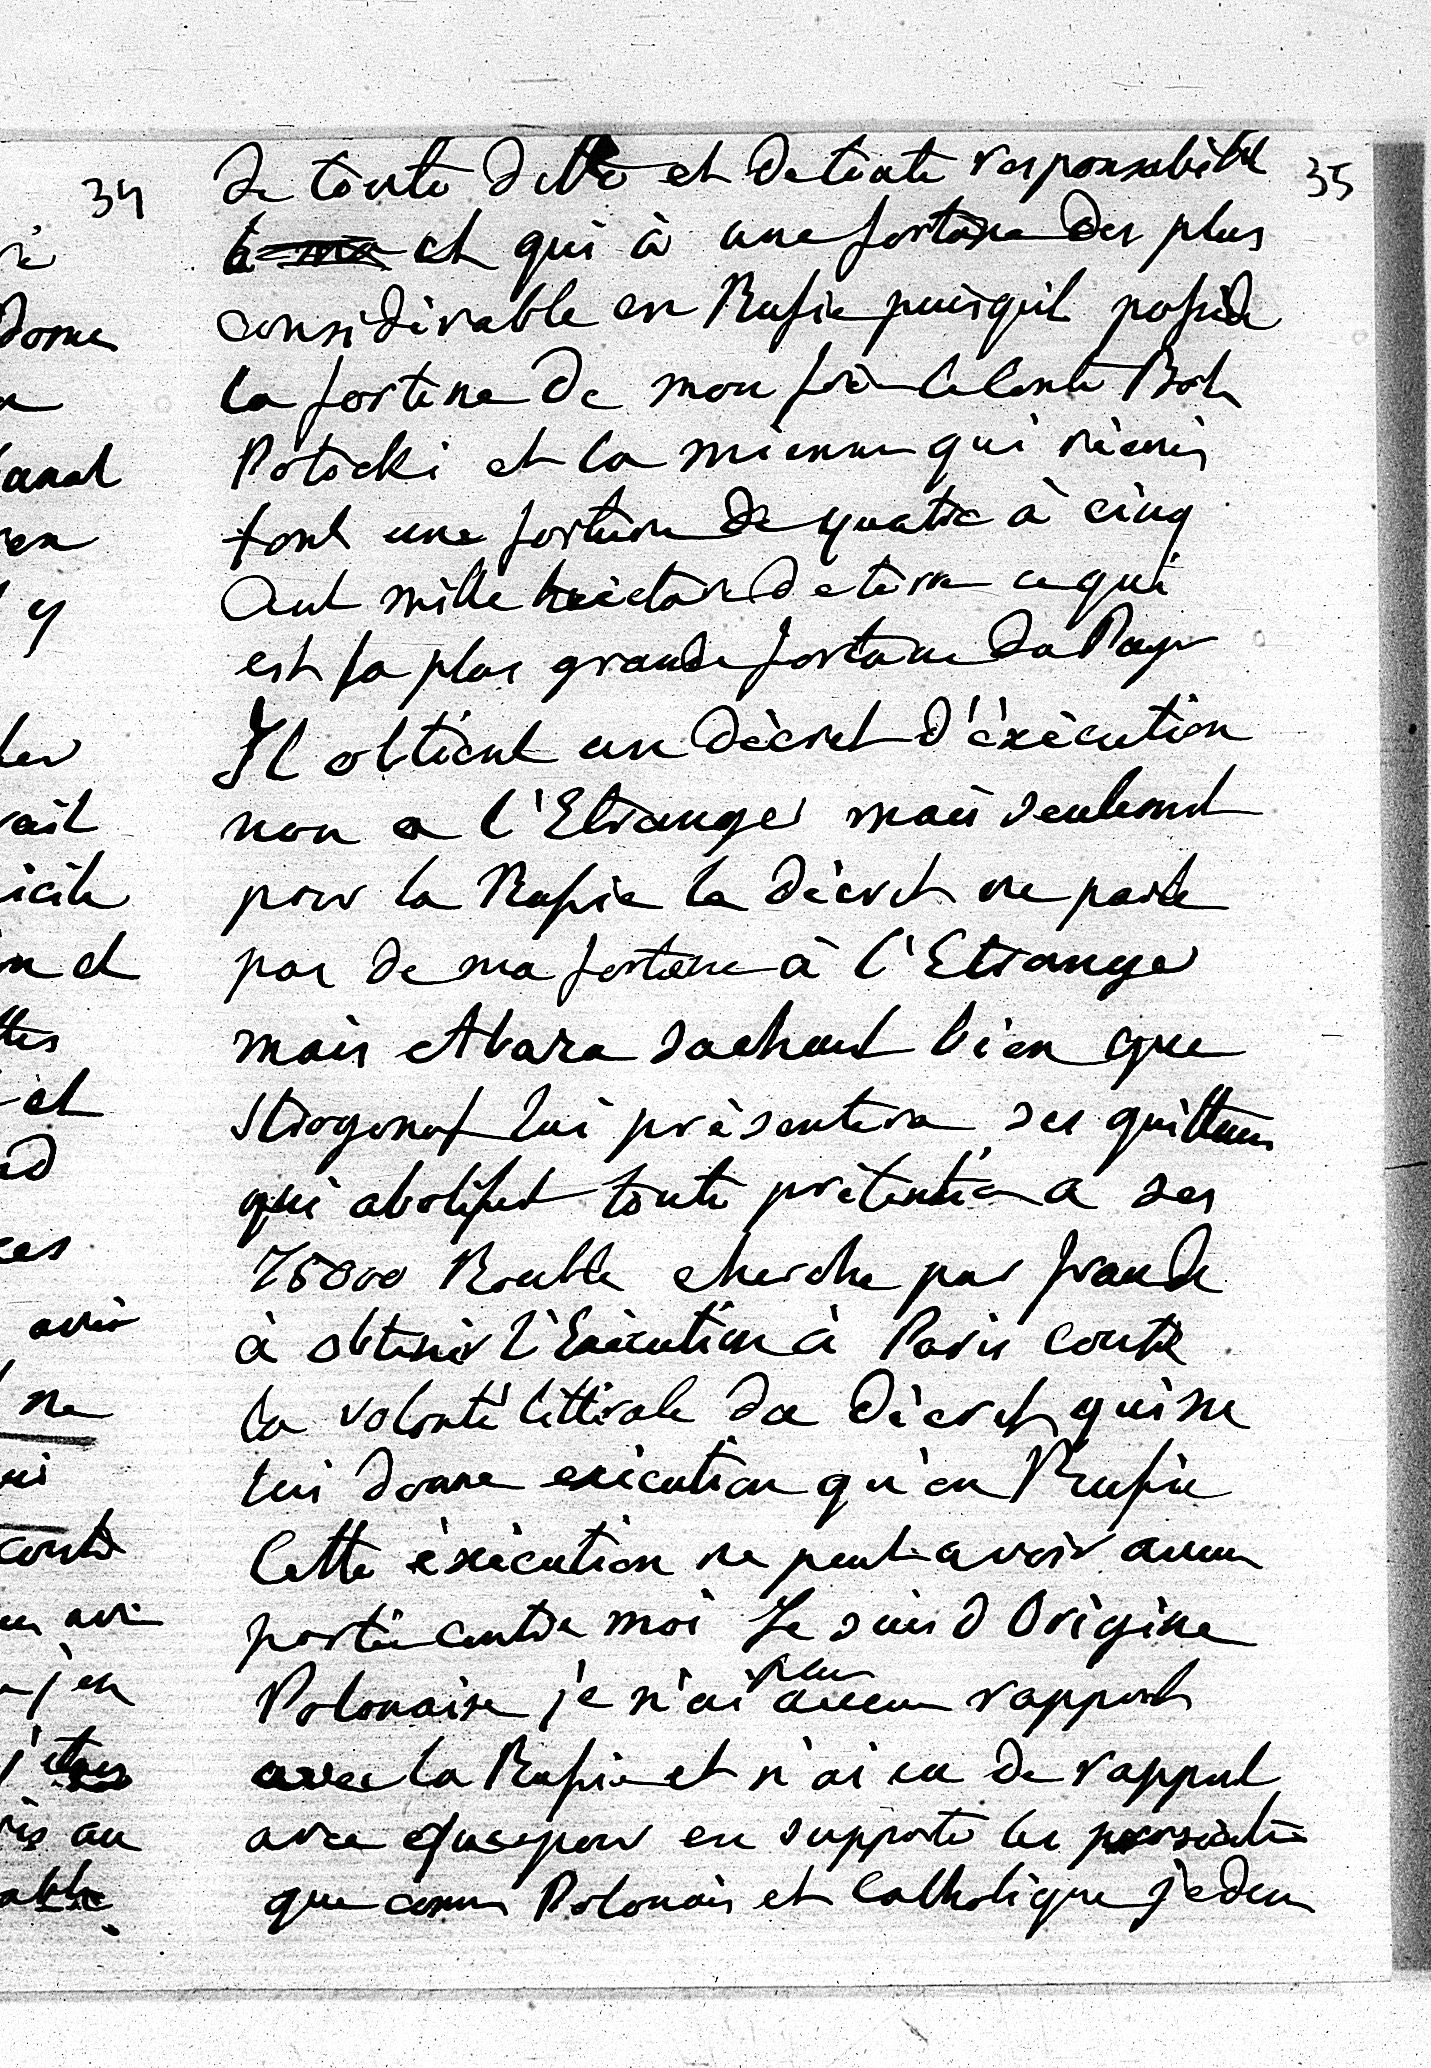 34
35
de toute dette et de toute responsabilité
à ma et qui à une fortune des plus
considèrable en Russie puisqu'il possède
la fortune de mon frère le Conte
Potocki et la mienne qui rèunis
font une fortune de quatre à cinq
Cent mille hèctare de terre ce qui
est la plus grande fortune du Pays
Il obtient un dècret d'éxècution
non a l'Etranger mais seulement
pour la Russie le dècret ne parle
pas de ma fortune à l'Etranger
mais Abaza sachant bien que
Strogonof lui prèsentera ses quittances
qui abolissent toute prètention a ses
75000 Rouble cherche par fraude
à obtenir l'Exècution à Paris contre
la volonté littèrale du dècret qui ne
lui donne exècution qu'en Russie
Cette èxècution ne peut avoir aucun
portèe contre moi Je suis d Origine
Polonaise je n'ai plus aucun rapport
avec la Russie et n'ai eu de rapport
avec que pour en supporté les persècution
que comme Polonais et Catholique
dome
en
y
vait
icile
on et
ttes
et
ces
avis
ne
contre
j'en
au